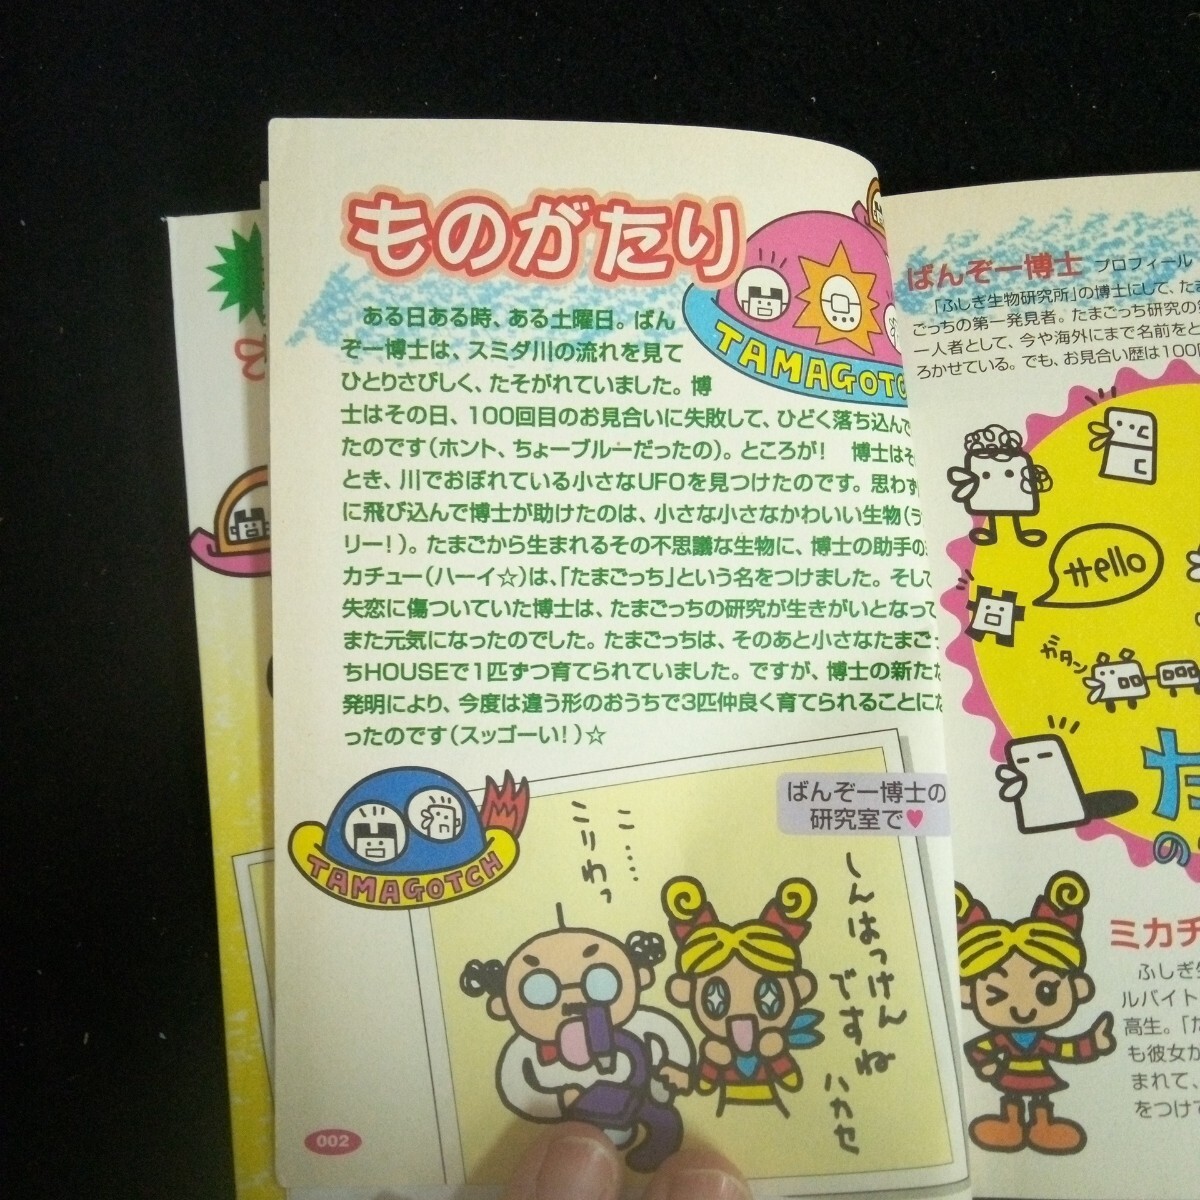 ものがたり
TAMAGOTC
ある日ある時、ある土曜日。ばん
ぞー博士は、スミダ川の流れを見て
ひとりさびしく、たそがれていました。博
士はその日、100回目のお見合いに失敗して、ひどく落ち込んで
たのです(ホント、ちょーブルーだったの)。ところが! 博士はそ
とき、川でおぼれている小さなUFOを見つけたのです。思わず
に飛び込んで博士が助けたのは、小さな小さなかわいい生物(ラ
リー!)。たまごから生まれるその不思議な生物に、博士の助手の
カチュー(ハーイ☆)は、「たまごっち」という名をつけました。そし
失恋に傷ついていた博士は、たまごっちの研究が生きがいとなって
また元気になったのでした。たまごっちは、そのあと小さなたまご
ちHOUSEで1匹ずつ育てられていました。ですが、博士の新たな
発明により、今度は違う形のおうちで3匹仲良く育てられることにな
ったのです(スッゴーい!)☆
TAMAGOTCH
ばんぞー博士の
研究室で♥
こ……
こりわっ
しんはっけん
ですね
ハカセ
002
ばんぞー博士 プロフィール
「ふしぎ生物研究所」の博士にして、たま
ごっちの第一発見者。たまごっち研究の
一人者として、今や海外にまで名前をと
ろかせている。でも、お見合い歴は100回
Hello
ガタン
た
の
ミカチ
ふしぎ生
ルバイト
高生。「た
も彼女が
まれて、
をつけて